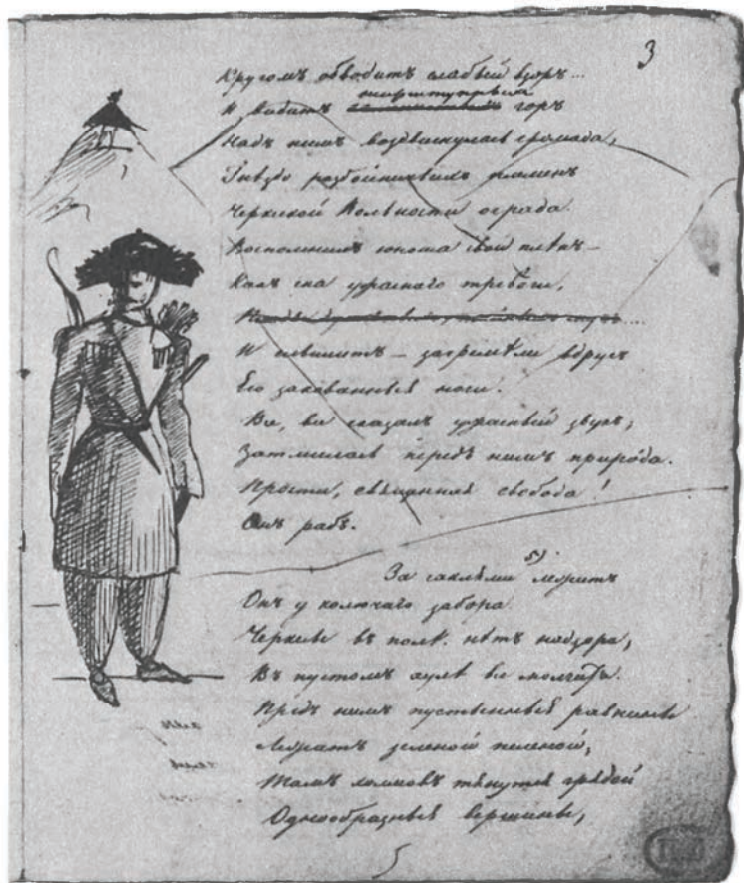 3
Кругомъ обводитъ слабый взоръ...
неприступныхъ
И видитъ горъ
Надъ нимъ воздвигнулась громада,
Гнѣздо разбойничьихъ племенъ
Черкеской Вольности ограда.
Воспомнилъ юноша свой плѣнъ —
Какъ сна ужаснаго тревоги,
И слышитъ — загремѣли вдругъ
Его закованныя ноги.
Все, все сказалъ ужасный звукъ;
Затмилась передъ нимъ природа.
Прости, священная свобода!
Онъ рабъ.
За саклями 5) лежитъ
Онъ у колючаго забора
Черкесы въ полѣ. нѣтъ надзора,
Въ пустомъ аулѣ все молчитъ.
Предъ нимъ пустынныя равнины
Лежатъ зеленой пеленой;
Тамъ холмовъ тянутся грядой
Однообразныя вершины,